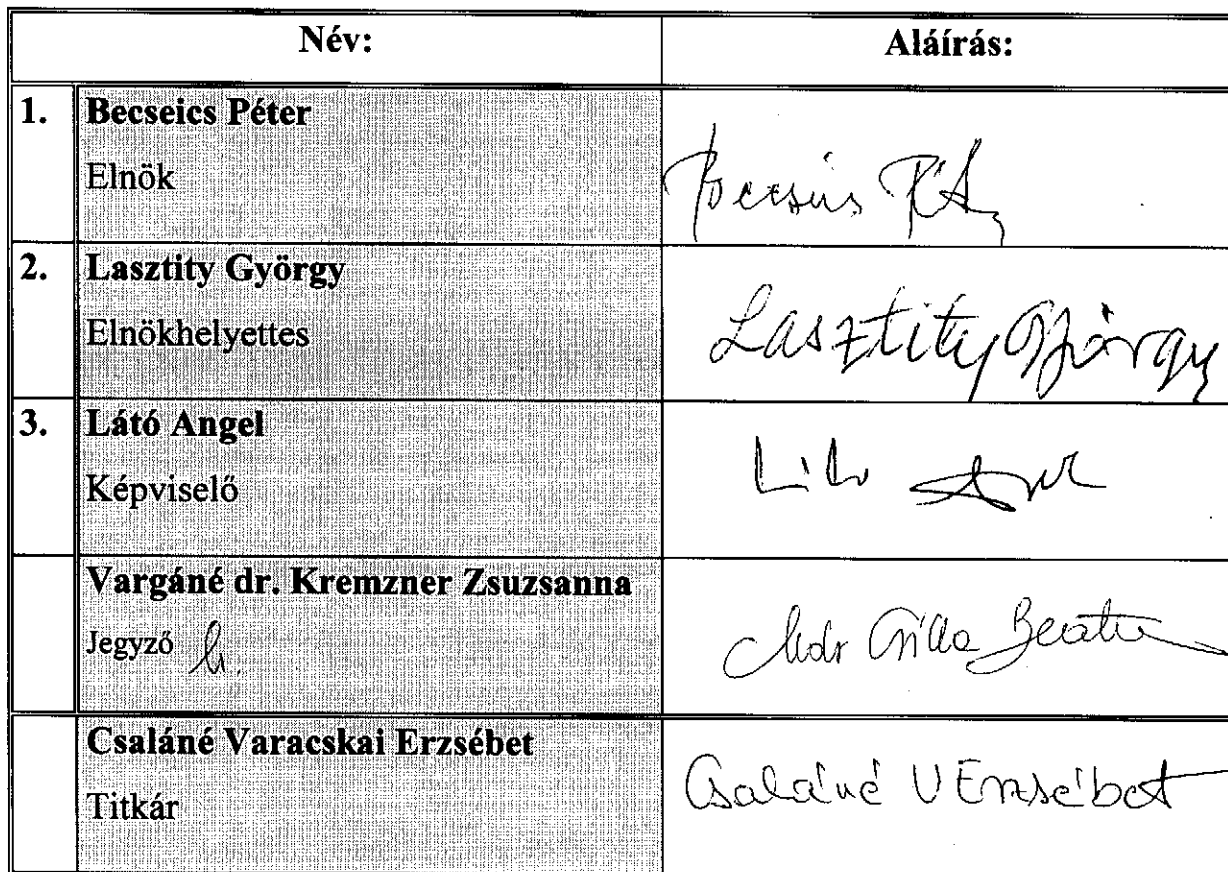 Név: Aláírás:
1. Becseics Péter
Elnök
2. Lasztity György
Elnökhelyettes
Lasztity György
3. Látó Angel
Képviselő
Vargáné dr. Kremzner Zsuzsanna
Jegyző h.
Csaláné Varacskai Erzsébet
Titkár
Csaláné V Erzsébet